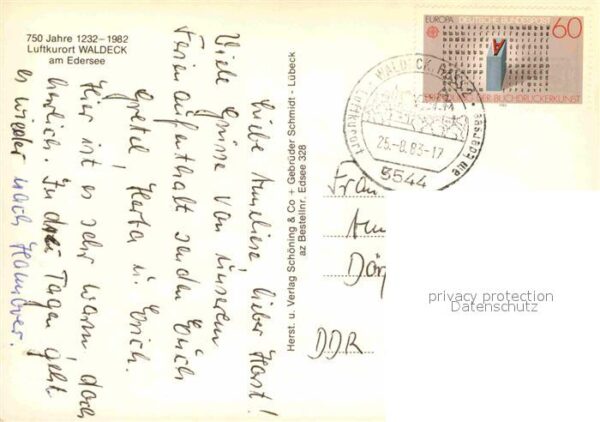 750 Jahre 1232-1982
Luftkurort WALDECK
am Edersee
Liebe Anneliese, lieber Horst!
Viele Grüsse von unserem
Ferienaufenthalt senden Euch
Gretel Herta u. Erich.
Hier ist es sehr warm doch
herrlich. In drei Tagen geht
es wieder nach Hannover.
Herst. u. Verlag Schöning & Co + Gebrüder Schmidt - Lübeck
az Bestellnr. Edsee 328
EUROPA DEUTSCHE BUNDESPOST 60
DER BUCHDRUCKERKUNST
WALDECK
Luftkurort
am Edersee
25.-8.83-17
3544
Frau
Ann
Dör
DDR
privacy protection
Datenschutz